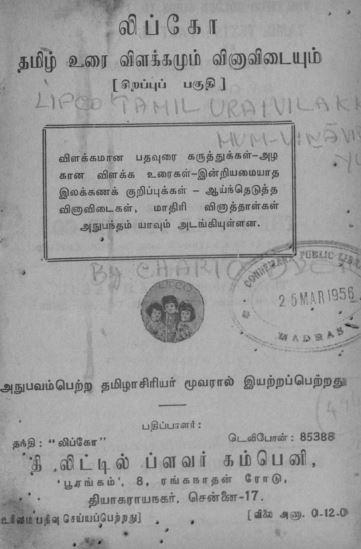 லிப்கோ
தமிழ் உரை விளக்கமும் வினாவிடையும்
[ சிறப்புப் பகுதி ]
LIPCO TAMIL URAIVILAK
HUM-VINAVI
விளக்கமான பதவுரை கருத்துக்கள்-அழ
கான விளக்க உரைகள்-இன்றியமையாத
இலக்கணக் குறிப்புக்கள் - ஆய்ந்தெடுத்த
வினாவிடைகள், மாதிரி வினாத்தாள்கள்
அநுபந்தம் யாவும் அடங்கியுள்ளன.
BY
PUBLIC
26 MAR 1956
MADRAS
LIPCO
அநுபவம்பெற்ற தமிழாசிரியர் மூவரால் இயற்றப்பெற்றது
பதிப்பாளர்:
தந்தி: "லிப்கோ" டெலிபோன்: 85388
தி லிட்டில் ப்ளவர் கம்பெனி,
'பூரங்கம்', 8, ரங்கநாதன் ரோடு,
தியாகராயநகர், சென்னை-17.
உரிமை பதிவு செய்யப்பெற்றது] [விலை அணா. 0-12-0